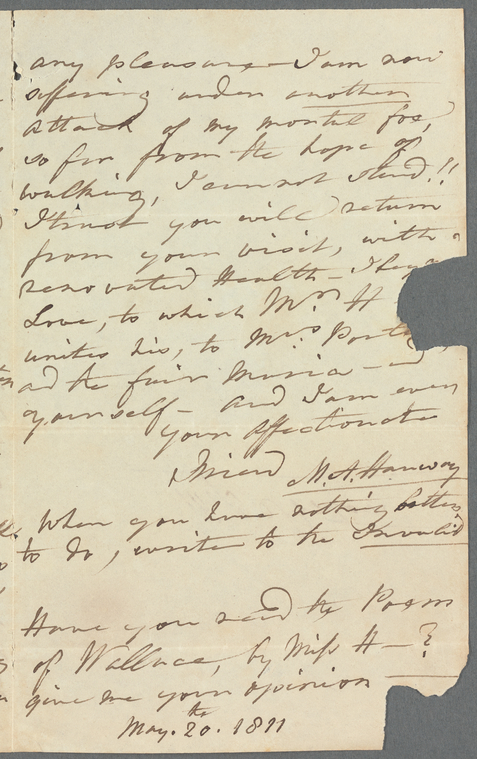 any pleasure – I am now
suffering under another
attack of my mortal foe,
so far from the hope of
walking, I can not stand!!
I trust you will return
from your visit, with
renovated Health – I beg
Love, to which Mr. H
unites his, to Mrs Port
and the fair Maria – and
yourself – and I am ever
your affectionate
Friend M. A. Hanway
When you have nothing better
to do, write to the Invalid
Have you read the Poem
of Wallace, by Miss H – ?
give me your opinion
May. 20.th 1811